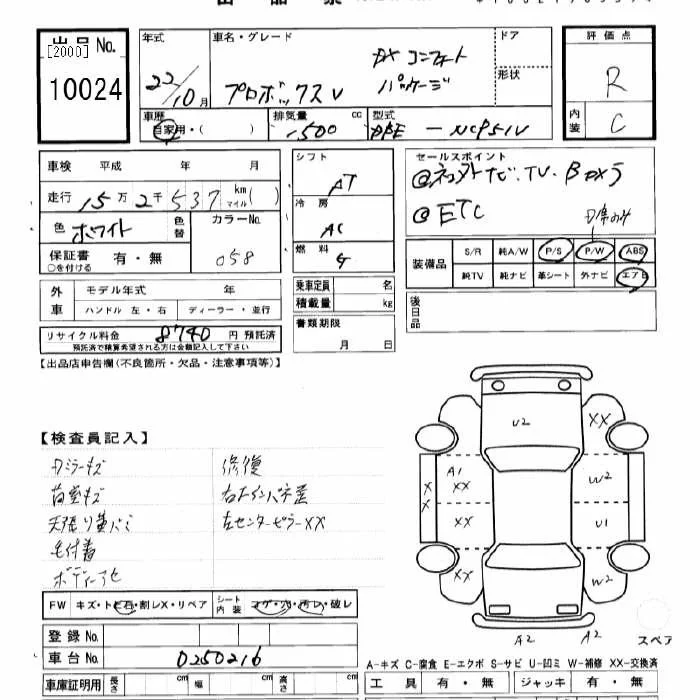 出品No.
[2000]
10024
年式
22/10月
車名・グレード
プロボックスV
DX コンフォート
パッケージ
ドア
形状
評価点
R
内装
C
車歴
自家用・( )
排気量
1,500 cc
型式
DBE - NCP51V
車検 平成 年 月
走行 15万2千537 km マイル ( )
色 ホワイト
色替
カラーNo.
058
保証書 有・無
○を付ける
外車
モデル年式 年
ハンドル 左・右
ディーラー・並行
リサイクル料金 8740 円 預託済
預託済で精算希望される方は金額記入して下さい
シフト
AT
冷房
AC
燃料
G
乗車定員 名
積載量 kg
書類期限
月 日
セールスポイント
@ネコ外ナビ、TV、Bカメラ
@ETC
装備品
S/R 純A/W P/S P/W ABS
純TV 純ナビ 革シート 外ナビ エアB
後日品
【出品店申告欄(不良箇所・欠品・注意事項等)】
【検査員記入】
Dミラーキズ
荷室キズ
天張り黄バミ
毛付着
ボディーアセ
修復
右Fインパネ歪
左センターピラーXX
U2
XX
A1
XX
XX
XX
X
X
W2
U1
W2
A2
A2
スペア
FW キズ・トビ石・割レX・リペア
シート内装 コゲ・穴・汚レ・破レ
登録No.
車台No. 0250216
車庫証明用 長さ 幅 高さ
A-キズ C-腐食 E-エクボ S-サビ U-凹ミ W-補修 XX-交換済
工具 有・無 ジャッキ 有・無